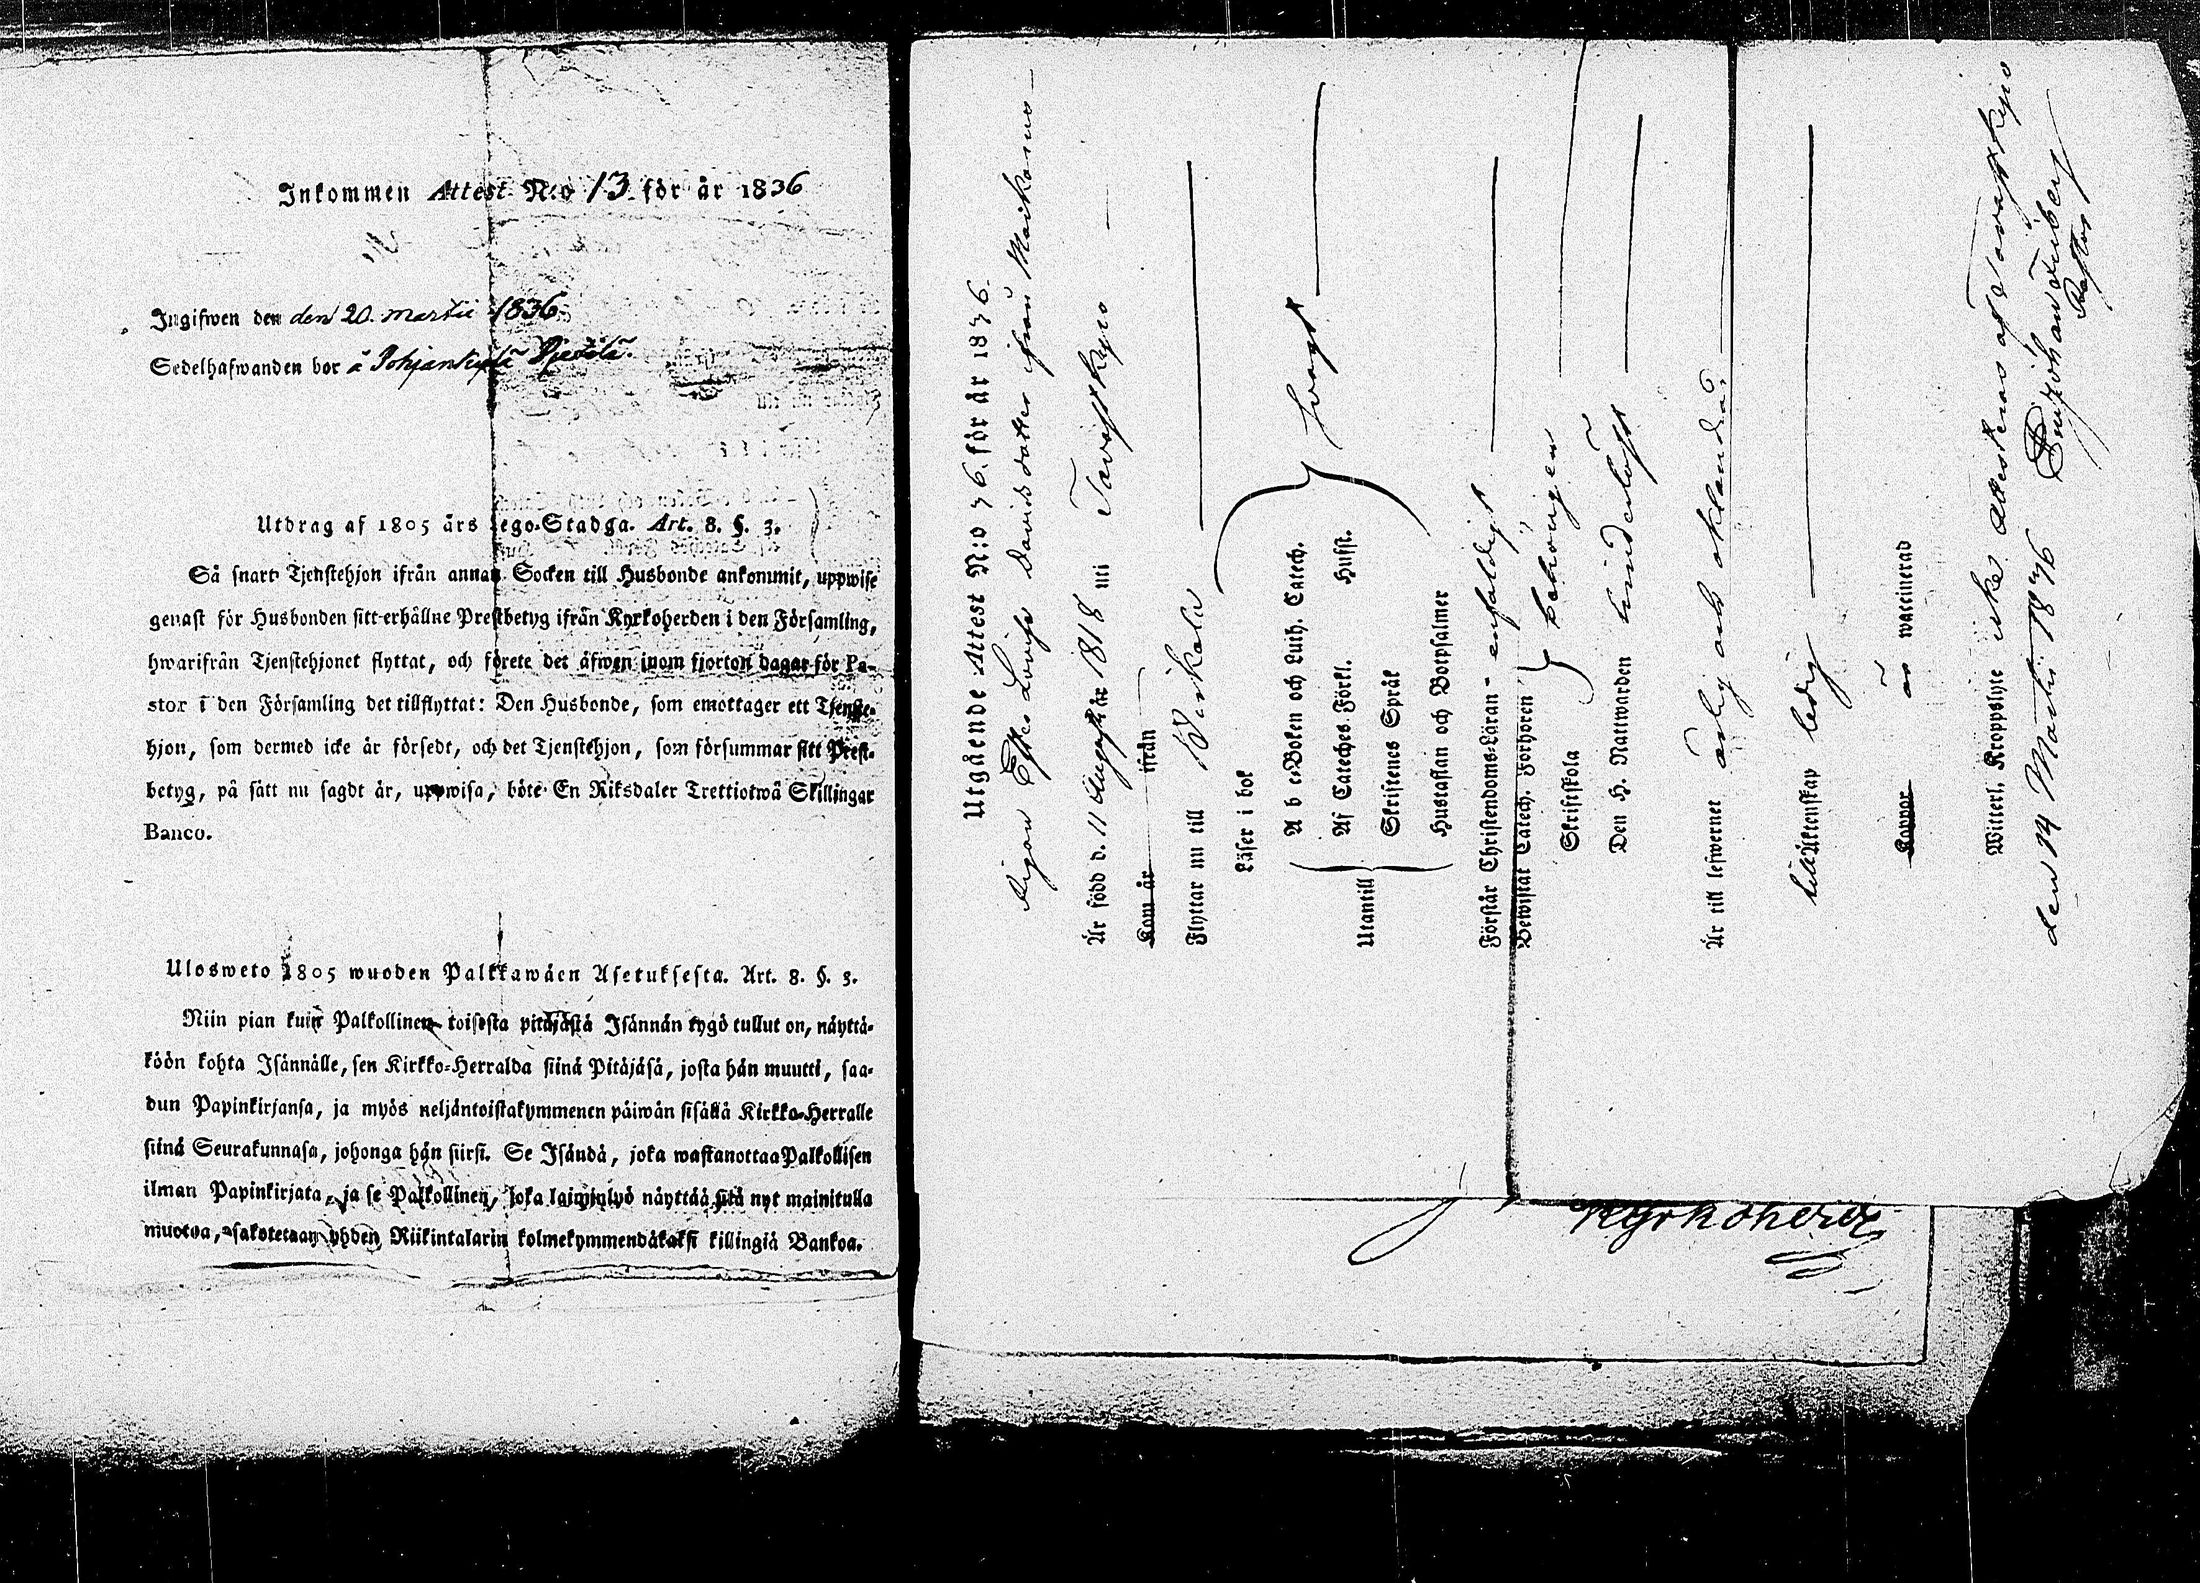 Inkommen Attest N:o 13 för år 1836
Ingifwen den den 20. martii 1836
Sedelhafwanden bor å Pohjankylä
Utdrag af 1805 års Lego-Stadga. Art. 8. §. 3.
Så snart Tjenstehjon ifrån annan Socken till Husbonde ankommit, uppwise
genast för Husbonden sitt erhållne Prestbetyg ifrån Kyrkoherden i den Församling,
hwarifrån Tjenstehjonet flyttat, och förete det äfwen inom fjorton dagar för Pa-
stor i den Församling det tillflyttat: Den Husbonde, som emottager ett Tjenste-
hjon, som dermed icke är försedt, och det Tjenstehjon, som försummar sitt Prest-
betyg, på sätt nu sagdt är, uppwisa, böte En Riksdaler Trettiotwå Skillingar
Banco.
Ulosweto 1805 wuoden Palkkawäen Asetuksesta. Art. 8. §. 3.
Niin pian kuin Palkollinen toisesta pitäjästä Isännän tygö tullut on, näyttä-
köön kohta Isännälle, sen Kirkko-Herralda siinä Pitäjäsä, josta hän muutti, saa-
dun Papinkirjansa, ja myös neljäntoistakymmenen päiwän sisällä Kirkko-Herralle
siinä Seurakunnasa, johonga hän siirsi. Se Isändä, joka wastanottaa Palkollisen
ilman Papinkirjata, ja se Palkollinen, joka laiminlyö näyttää sitä nyt mainitulla
muotoa, sakotetaan yhden Riikintalarin kolmekymmendäkaksi killingiä Bankoa.
Utgående Attest N:o 36. för år 1836.
Pigan Lovisa Davids dotter ifrån
Är född d. 11 August. år 1818 uti Tavastkyro
Kom år ifrån
Flyttar nu till Wirkala
Läser i bok
A b c-Boken och Luth. Catech.
Utantill Af Cateches. Förkl. Hufst. svagt
Skriftenes Språk
Hustaflan och Botpsalmer
Förstår Christendoms-Läran - enfaldigt
Bewistat Catech. Förhören
Skriftskola behörigen
Den H. Nattwarden
Är till lefwernet ärlig och oklandrad.
till Äktenskap ledig
Koppor är waccinerad
Witterl. Kroppslyte icke Attesteras af Tavastkyro
den 14 Martii 1836
Pastor
Kyrkoherde